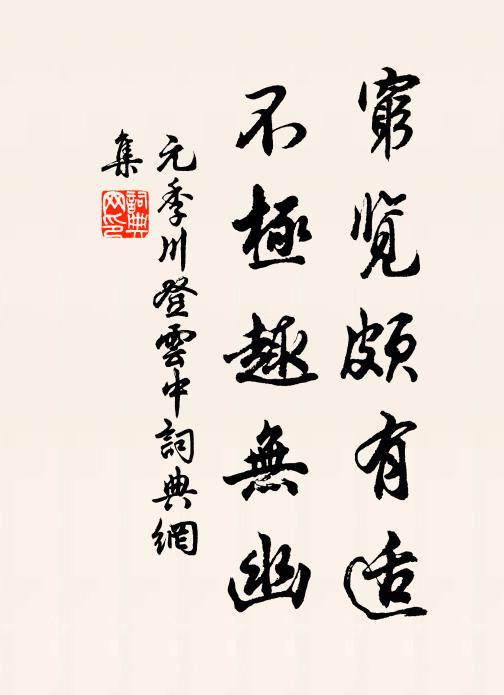 窮览頗有适
不極趣無幽
元季川登雲中詞典網
集
詞典
网印